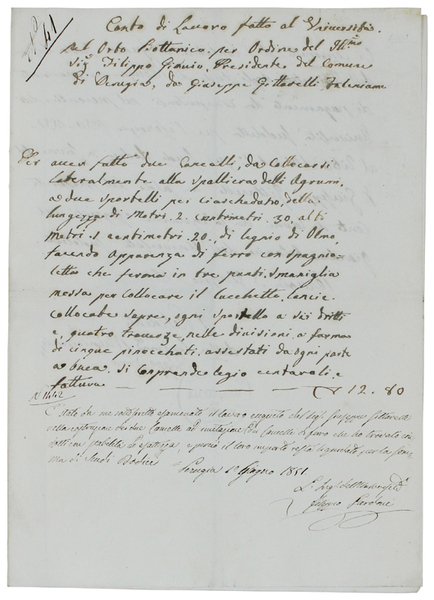 N° 41
Conto di Lavoro fatto al Università
nel Orto Bottanico, per Ordine del Ill.mo
Sig. Filippo Presidente del Comune
di Perugia, da Giuseppe Falegname
Per aver fatto due Cancelli, da Collocarsi
lateralmente alla Spalliera delli Agrumi
a due Sportelli per ciascheduno, della
lunghezza di Metri 2. centimetri 30, alti
metri 1 centimetri 20, di legnio di Olmo,
facendo apparenza di ferro con spagnio-
letta che ferma in tre punti, smaniglia
messa per collocare il lucchetto, lancie
collocate sopra, ogni sportello a sei dritti
e quattro traverze, nelle divisioni, a forma
di cinque pinocchiati, assestati da ogni parte
a buca. Si comprende legio
fattura — 12. 80
N. 1442
È stato da me sottoscritto esaminato il lavoro eseguito dal Sig. Giuseppe
nella costruzione di due Cancelli ad imitazione di che ho trovato con
tutta stabilità ed esattezza, e perciò il loro importo resta
ma di Scudi Dodici
Perugia 11 Giugno 1851
L'
Filippo